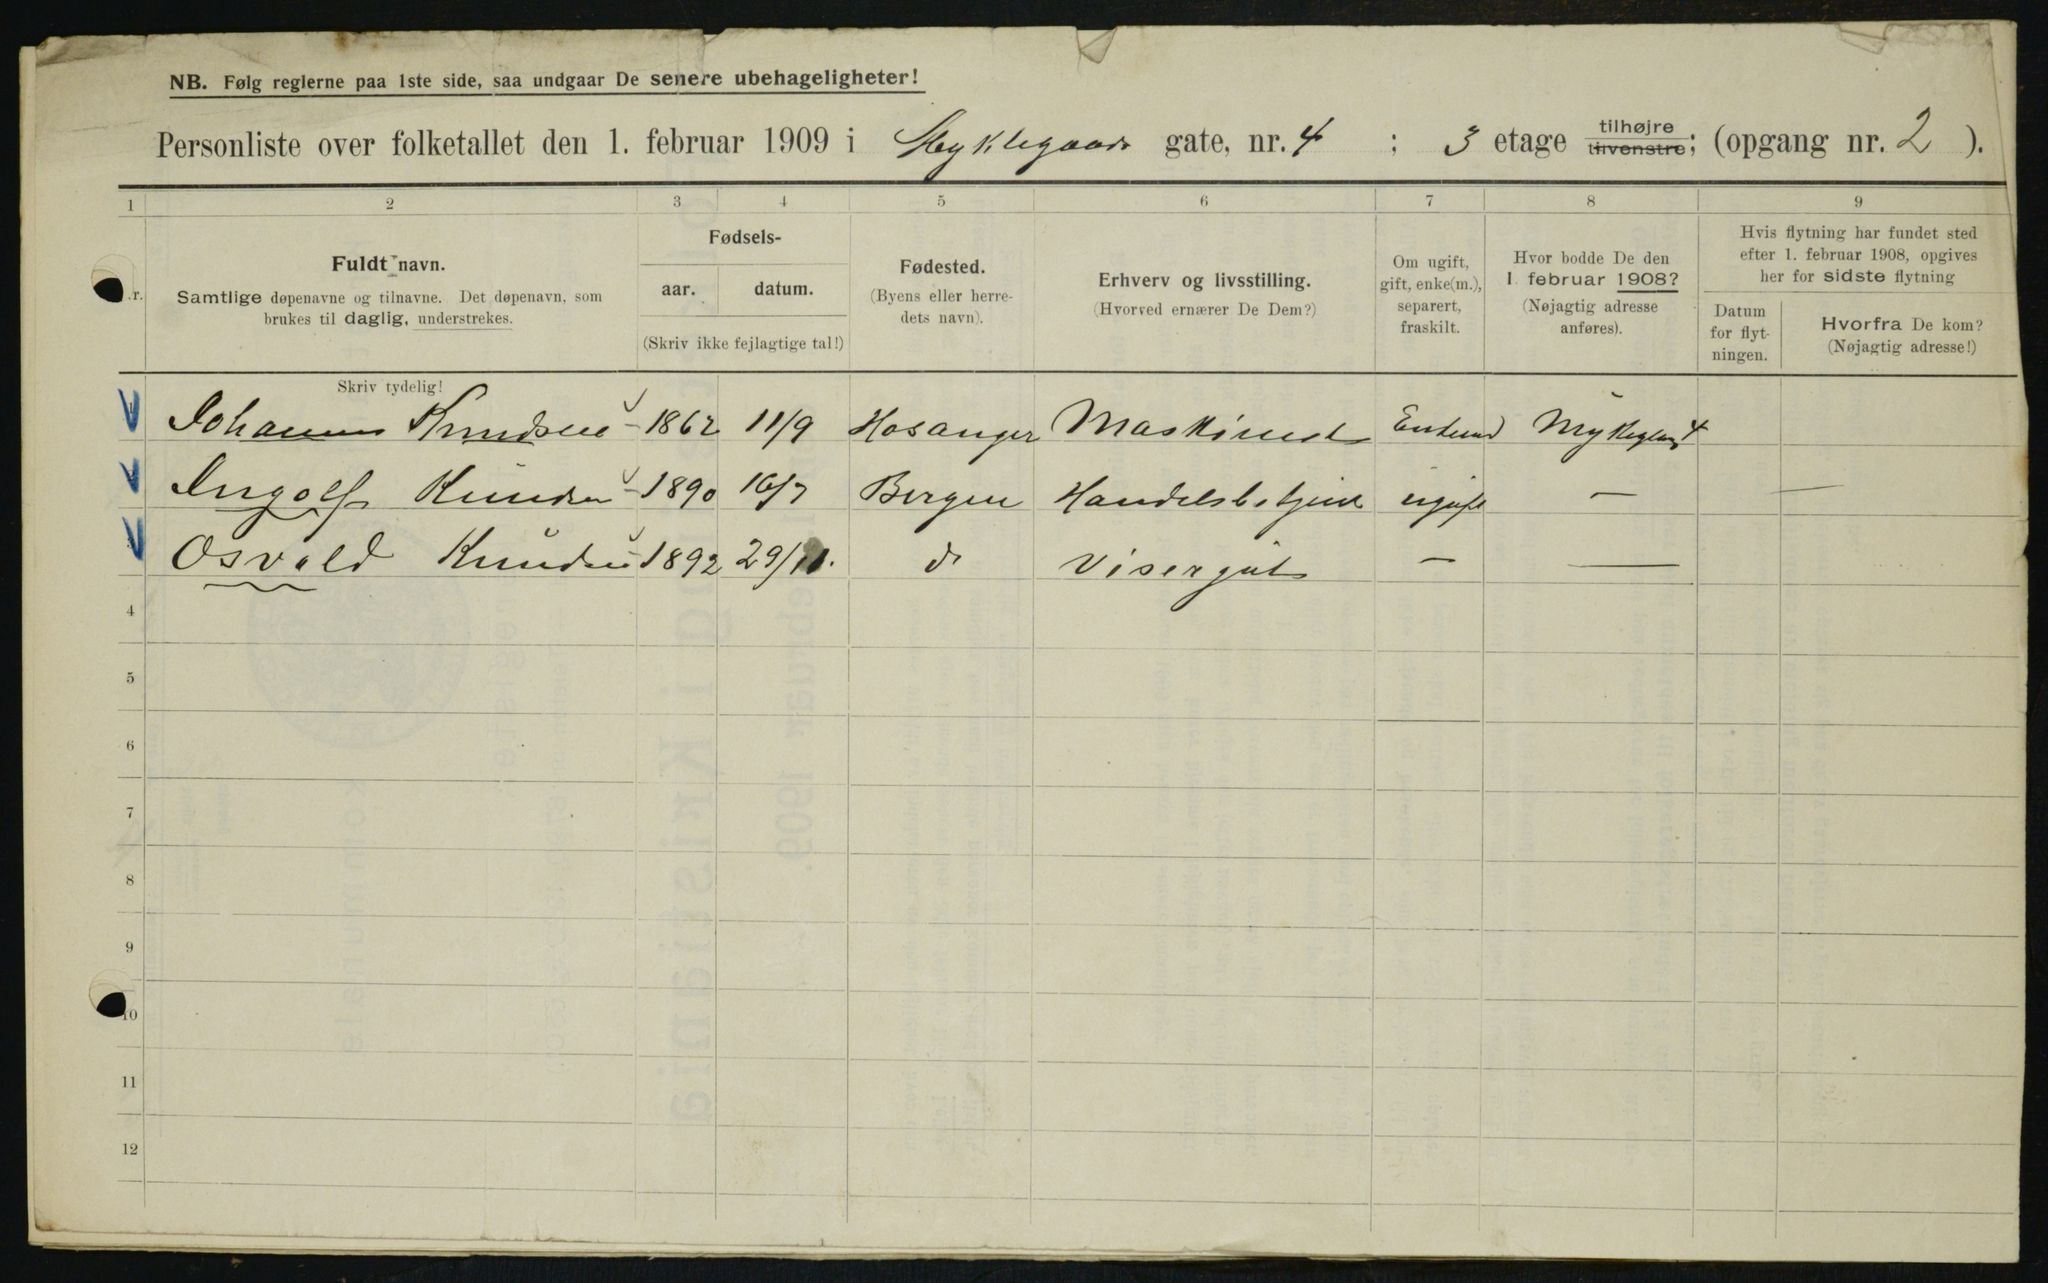 NB. Følg reglerne paa 1ste side, saa undgaar De senere ubehageligheter!
Personliste over folketallet den 1. februar 1909 i Myklegaards gate, nr. 4 ; 3 etage tilhøjre tilvenstre; (opgang nr. 2 ).
1 2 3 4 5 6 7 8 9
Nr.
Fuldt navn.
Samtlige døpenavne og tilnavne. Det døpenavn, som
brukes til daglig, understrekes.
Skriv tydelig!
Fødsels-
aar. datum.
(Skriv ikke fejlagtige tal!)
Fødested.
(Byens eller herre-
dets navn).
Erhverv og livsstilling.
(Hvorved ernærer De Dem?)
Om ugift,
gift, enke(m.),
separert,
fraskilt.
Hvor bodde De den
1. februar 1908?
(Nøjagtig adresse
anføres).
Hvis flytning har fundet sted
efter 1. februar 1908, opgives
her for sidste flytning
Datum
for flyt-
ningen.
Hvorfra De kom?
(Nøjagtig adresse!)
Johannes Knudsen 1862 11/9 Hosanger Maskinist Enkemd Mykleg 4
Ingolf Knudsen 1890 16/7 Bergen Handelsbetjent ugift — —
Osvald Knudsen 1892 29/11. d Visergut — —
4
5
6
7
8
9
10
11
12